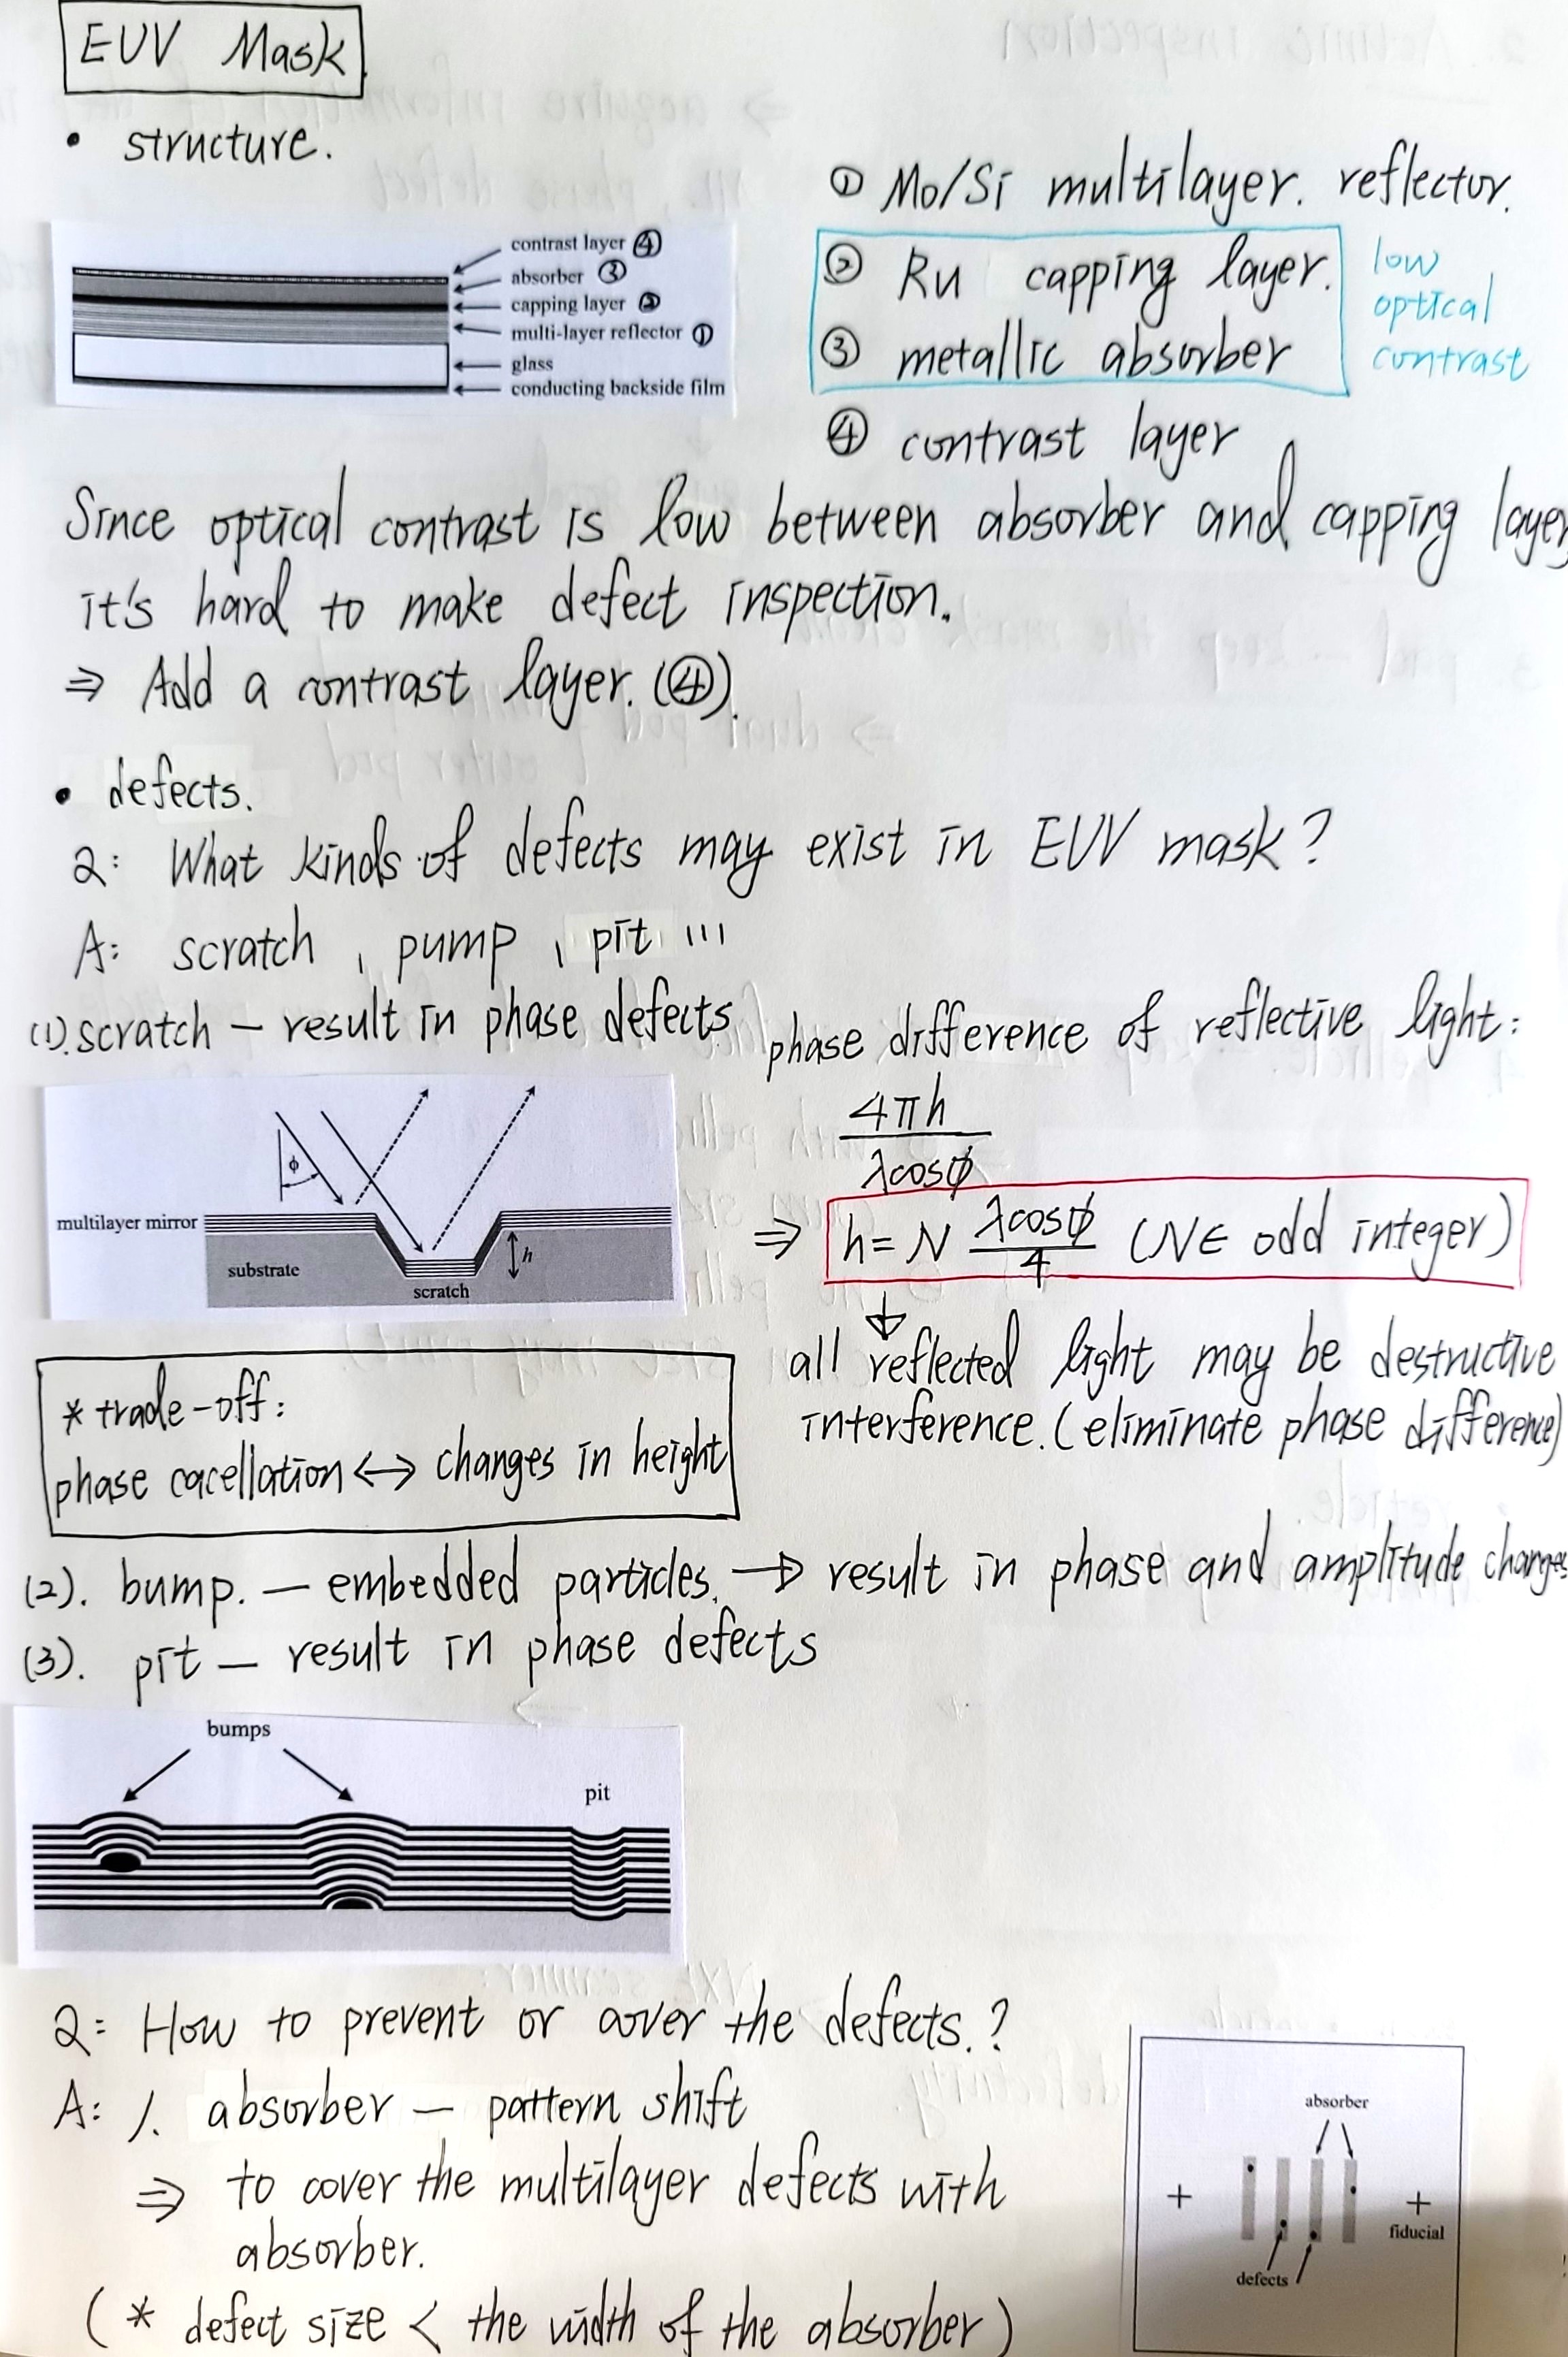 EUV Mask
• structure.
contrast layer ④
absorber ③
capping layer ②
multi-layer reflector ①
glass
conducting backside film
① Mo/Si multilayer. reflector.
② Ru capping layer.
③ metallic absorber
low
optical
contrast
④ contrast layer
Since optical contrast is low between absorber and capping layer
it's hard to make defect inspection.
⇒ Add a contrast layer. (④).
• defects.
Q: What kinds of defects may exist in EUV mask?
A: scratch, pump, pit ...
(1). scratch — result in phase defects
phase difference of reflective light:
4πh
λcosϕ
⇒ h = N λcosϕ/4 (N∈ odd integer)
ϕ
multilayer mirror
substrate
scratch
h
↓
all reflected light may be destructive
interference. (eliminate phase difference)
* trade-off:
phase cacellation ↔ changes in height
(2). bump. — embedded particles. → result in phase and amplitude changes
(3). pit — result in phase defects
bumps
pit
Q: How to prevent or cover the defects.?
A: 1. absorber — pattern shift
⇒ to cover the multilayer defects with
absorber.
(* defect size < the width of the absorber)
absorber
+
+
fiducial
defects